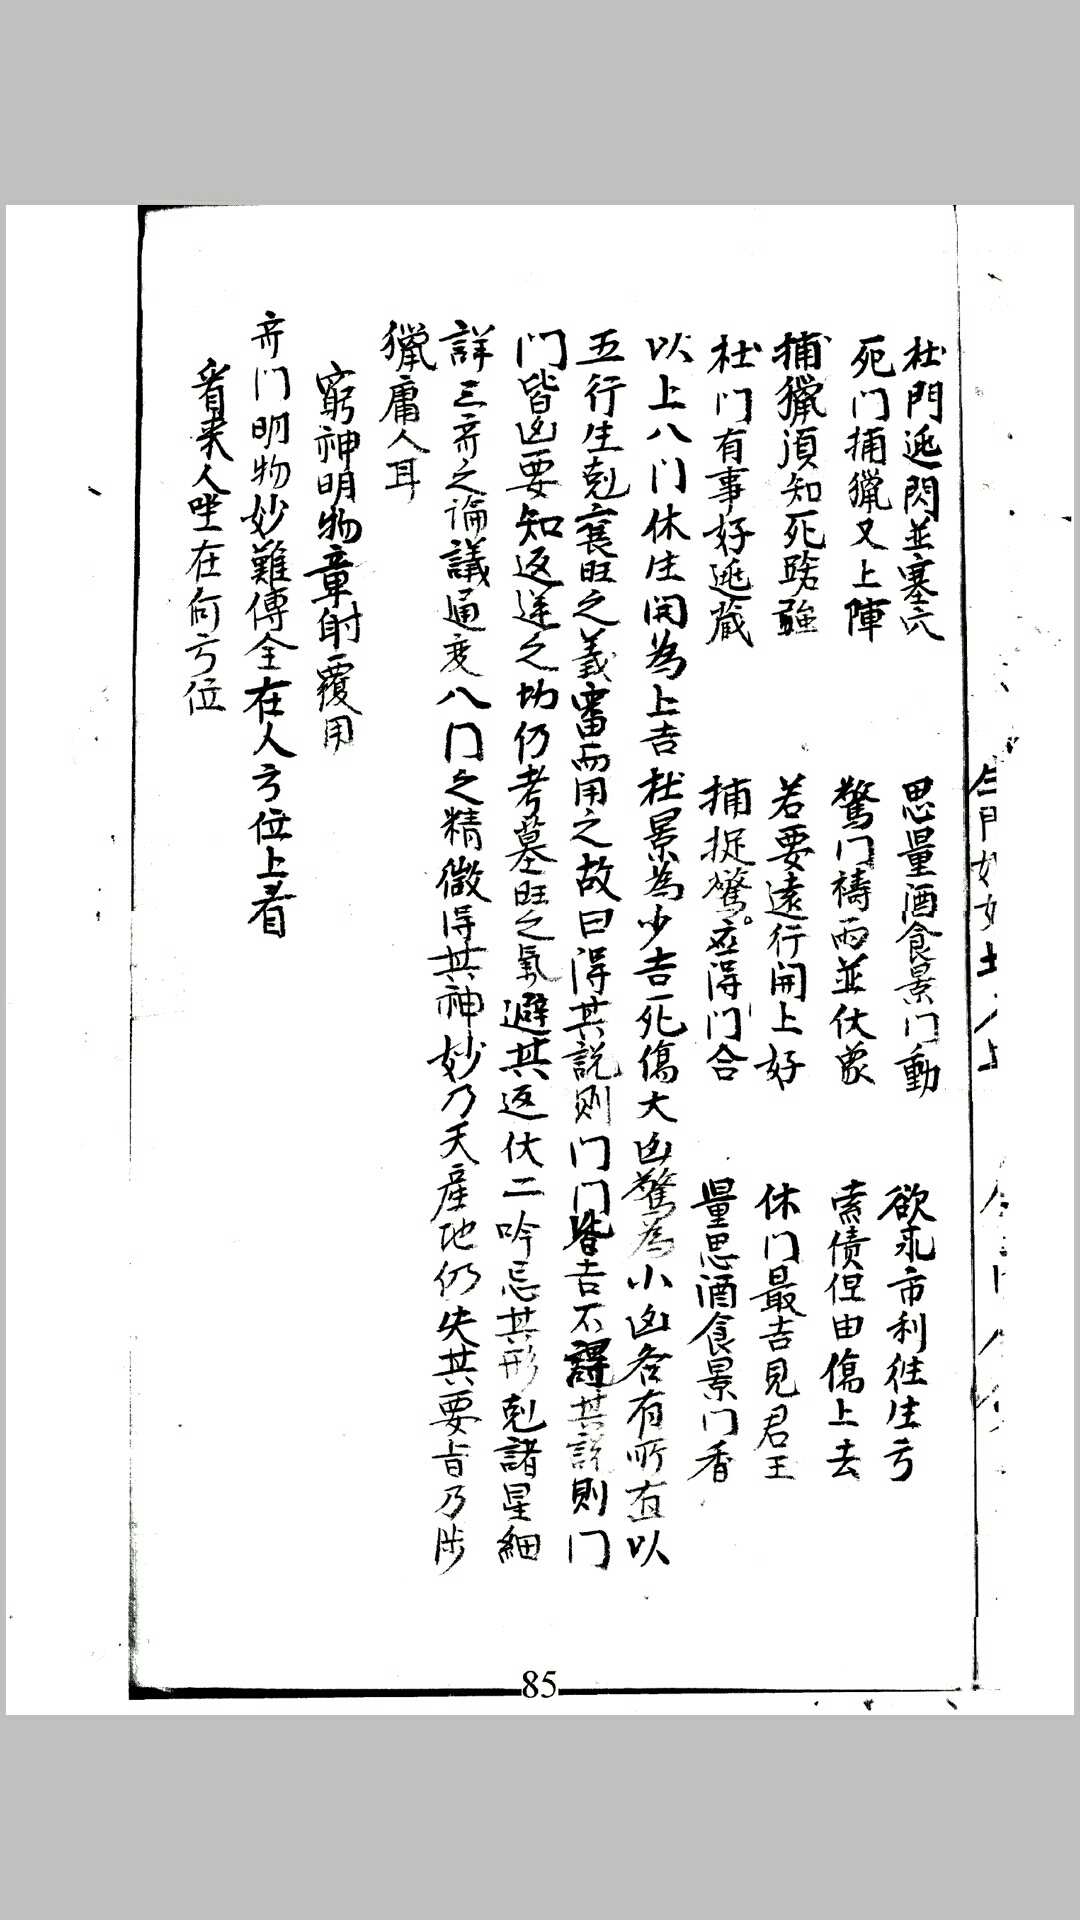 杜門逃閃並塞穴 思量酒食景门動 欲求市利往生方
死门捕獵又上陣 驚门禱雨並伏象 索债但由傷上去
捕獵須知死路強 若要遠行開上好 休门最吉見君王
杜门有事好逃蔵 捕捉驚。应得门合 量思酒食景门香
以上八门休生開為上吉杜景為少吉死傷大凶驚為小凶各有所宜以
五行生剋衰旺之義審而用之故曰得其説则门门皆吉不得其説則门
门皆凶要知返迷之切仍考墓旺之氣避其返伏二吟忌其形剋諸星細
詳三奇之論議通变八门之精微得其神妙乃天產地仍失其要旨乃涉
獵庸人耳
窮神明物章射覆用
奇门明物妙難傳全在人方位上看
看来人坐在何方位
85